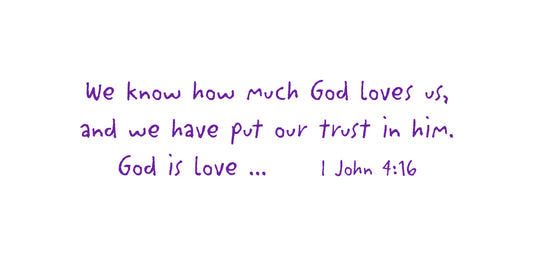 We know how much God loves us,
and we have put our trust in him.
God is love ... 1 John 4:16